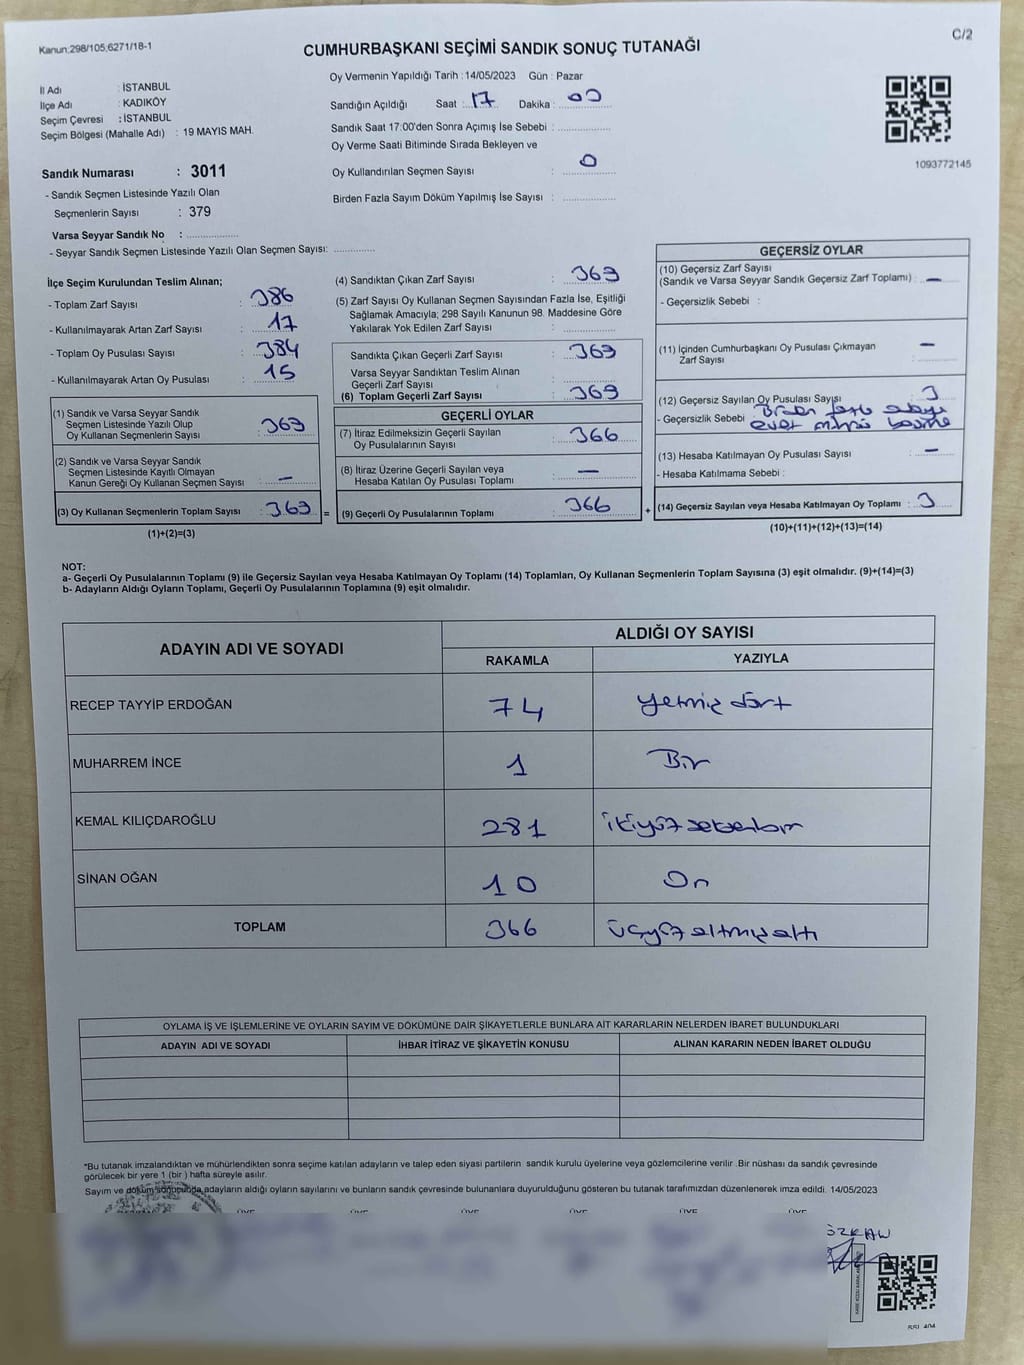 Kanun:298/105;6271/18-1
C/2
CUMHURBAŞKANI SEÇİMİ SANDIK SONUÇ TUTANAĞI
İl Adı : İSTANBUL
İlçe Adı : KADIKÖY
Seçim Çevresi : İSTANBUL
Seçim Bölgesi (Mahalle Adı) : 19 MAYIS MAH.
Oy Vermenin Yapıldığı Tarih : 14/05/2023 Gün : Pazar
Sandığın Açıldığı Saat : 17 Dakika : 00
Sandık Saat 17:00'den Sonra Açımış İse Sebebi :
Oy Verme Saati Bitiminde Sırada Bekleyen ve
Oy Kullandırılan Seçmen Sayısı : 0
Birden Fazla Sayım Döküm Yapılmış İse Sayısı :
1093772145
Sandık Numarası : 3011
- Sandık Seçmen Listesinde Yazılı Olan
Seçmenlerin Sayısı : 379
Varsa Seyyar Sandık No :
- Seyyar Sandık Seçmen Listesinde Yazılı Olan Seçmen Sayısı:
İlçe Seçim Kurulundan Teslim Alınan;
- Toplam Zarf Sayısı : 386
- Kullanılmayarak Artan Zarf Sayısı : 17
- Toplam Oy Pusulası Sayısı : 384
- Kullanılmayarak Artan Oy Pusulası : 15
(1) Sandık ve Varsa Seyyar Sandık
Seçmen Listesinde Yazılı Olup
Oy Kullanan Seçmenlerin Sayısı : 369
(2) Sandık ve Varsa Seyyar Sandık
Seçmen Listesinde Kayıtlı Olmayan
Kanun Gereği Oy Kullanan Seçmen Sayısı : —
(3) Oy Kullanan Seçmenlerin Toplam Sayısı : 369
(1)+(2)=(3)
(4) Sandıktan Çıkan Zarf Sayısı : 369
(5) Zarf Sayısı Oy Kullanan Seçmen Sayısından Fazla İse, Eşitliği
Sağlamak Amacıyla; 298 Sayılı Kanunun 98. Maddesine Göre
Yakılarak Yok Edilen Zarf Sayısı :
Sandıkta Çıkan Geçerli Zarf Sayısı : 369
Varsa Seyyar Sandıktan Teslim Alınan
Geçerli Zarf Sayısı :
(6) Toplam Geçerli Zarf Sayısı : 369
GEÇERLİ OYLAR
(7) İtiraz Edilmeksizin Geçerli Sayılan
Oy Pusulalarının Sayısı : 366
(8) İtiraz Üzerine Geçerli Sayılan veya
Hesaba Katılan Oy Pusulası Toplamı : —
= (9) Geçerli Oy Pusulalarının Toplamı : 366
GEÇERSİZ OYLAR
(10) Geçersiz Zarf Sayısı
(Sandık ve Varsa Seyyar Sandık Geçersiz Zarf Toplamı) : —
- Geçersizlik Sebebi :
(11) İçinden Cumhurbaşkanı Oy Pusulası Çıkmayan
Zarf Sayısı : —
(12) Geçersiz Sayılan Oy Pusulası Sayısı : 3
- Geçersizlik Sebebi : Birden fazla adaya
evet mührü basma
(13) Hesaba Katılmayan Oy Pusulası Sayısı : —
- Hesaba Katılmama Sebebi :
+ (14) Geçersiz Sayılan veya Hesaba Katılmayan Oy Toplamı : 3
(10)+(11)+(12)+(13)=(14)
NOT:
a- Geçerli Oy Pusulalarının Toplamı (9) ile Geçersiz Sayılan veya Hesaba Katılmayan Oy Toplamı (14) Toplamları, Oy Kullanan Seçmenlerin Toplam Sayısına (3) eşit olmalıdır. (9)+(14)=(3)
b- Adayların Aldığı Oyların Toplamı, Geçerli Oy Pusulalarının Toplamına (9) eşit olmalıdır.
ADAYIN ADI VE SOYADI ALDIĞI OY SAYISI
RAKAMLA YAZIYLA
RECEP TAYYİP ERDOĞAN 74 yetmiş dört
MUHARREM İNCE 1 Bir
KEMAL KILIÇDAROĞLU 281 ikiyüz seksenbir
SİNAN OĞAN 10 On
TOPLAM 366 üçyüz altmış altı
OYLAMA İŞ VE İŞLEMLERİNE VE OYLARIN SAYIM VE DÖKÜMÜNE DAİR ŞİKAYETLERLE BUNLARA AİT KARARLARIN NELERDEN İBARET BULUNDUKLARI
ADAYIN ADI VE SOYADI İHBAR İTİRAZ VE ŞİKAYETİN KONUSU ALINAN KARARIN NEDEN İBARET OLDUĞU
*Bu tutanak imzalandıktan ve mühürlendikten sonra seçime katılan adayların ve talep eden siyasi partilerin sandık kurulu üyelerine veya gözlemcilerine verilir .Bir nüshası da sandık çevresinde
görülecek bir yere 1 (bir ) hafta süreyle asılır.
Sayım ve döküm sonucunda adayların aldığı oyların sayılarını ve bunların sandık çevresinde bulunanlara duyurulduğunu gösteren bu tutanak tarafımızdan düzenlenerek imza edildi. 14/05/2023
ÜYE ÜYE ÜYE ÜYE ÜYE ÜYE